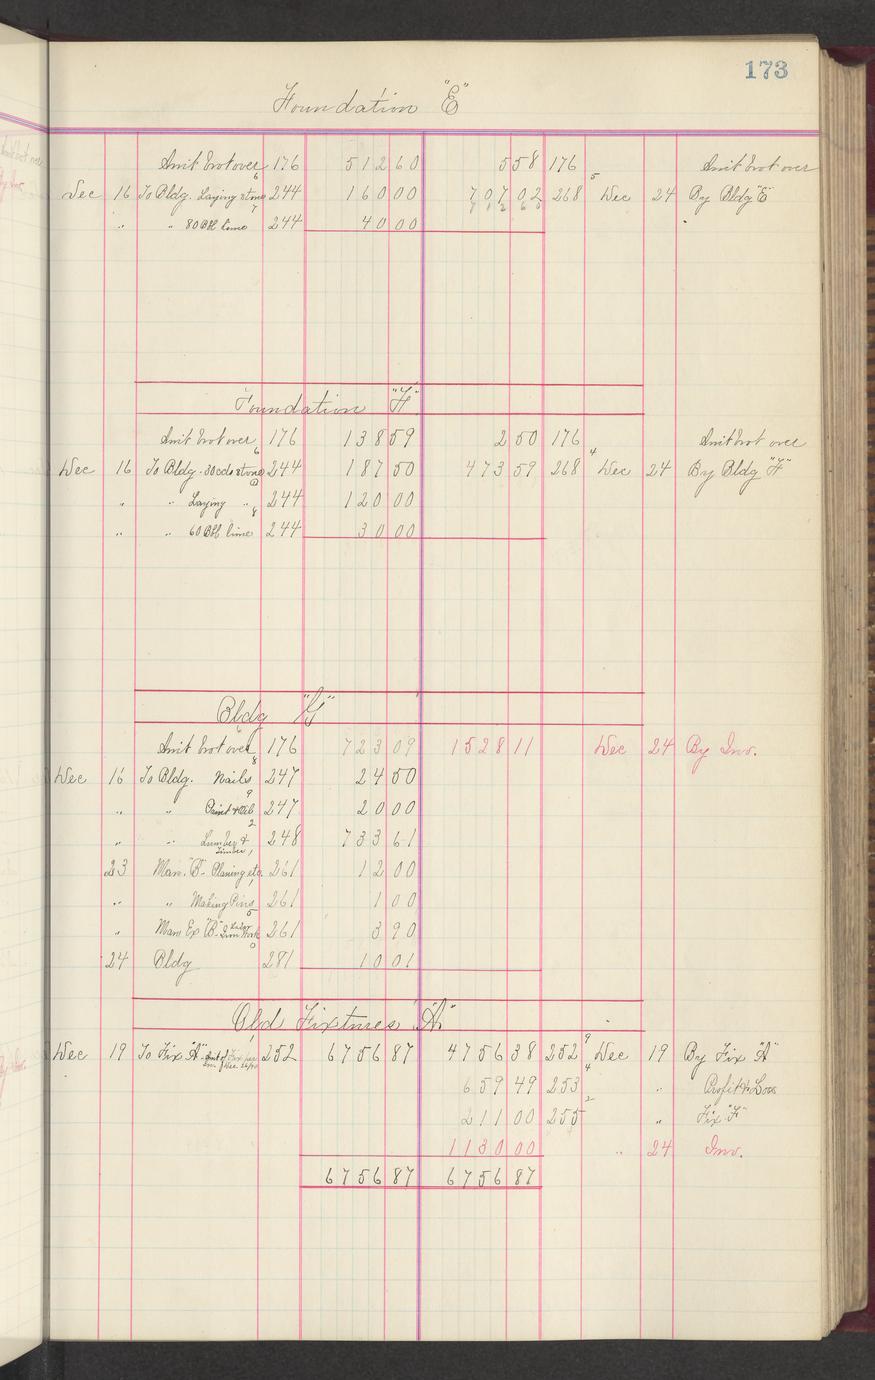 173
Foundation "E"
Amt brot over 176 512 60 5 58 176 Amt brot over
Dec 16 To Bldg. Laying stone 6 244 160 00 707 02 268 5 Dec 24 By Bldg "E"
" " 80 Bbl lime 7 244 40 00
Foundation "F"
Amt brot over 176 138 59 2 50 176 Amt brot over
Dec 16 To Bldg. 30 cds stone 6 244 187 50 473 59 268 4 Dec 24 By Bldg "F"
" " Laying " 244 120 00
" " 60 Bbl lime 8 244 30 00
Bldg "G"
Amt brot over 176 723 09 1528 11 Dec 24 By Inv.
Dec 16 To Bldg. Nails 8 247 24 50
" " Paint & Oil 9 247 20 00
" " Lumber & Timber 2 248 733 61
23 Man. "B" Planing etc. 1 261 12 00
" " Making Pins 1 261 1 00
" Man Ex "B" Labor Iron Work 5 261 3 90
24 Bldg 0 281 10 01
Old Fixtures "A"
Dec 19 To Fix "A" 1 252 6756 87 4756 38 252 9 Dec 19 By Fix "A"
659 49 253 4 " Profit & Loss
211 00 255 2 " Fix "F"
1130 00 " 24 Inv.
6756 87 6756 87